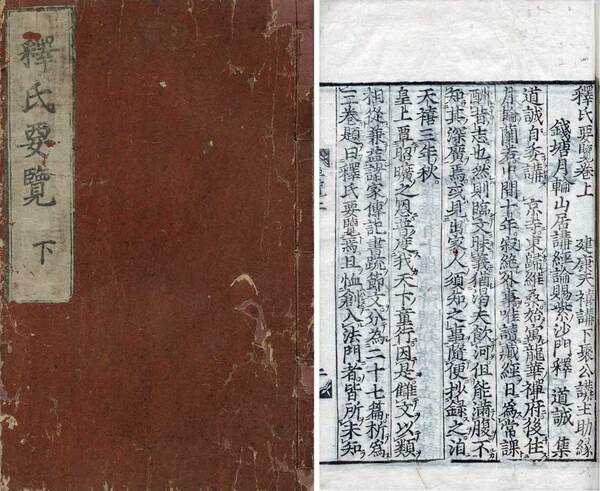 釋氏要覽
下
釋氏要覽卷上 建康天禧講下聚公講主助緣
錢塘月輪山居講經論賜紫沙門釋 道誠 集
道誠自委講 京寺東歸維桑始寓龍華禪府後住
月輪蘭若中間十年寂絕外事唯讀藏經日爲常課
酬昔志也然則臨文昧義猶渴夫飲河但能滿腹不
知其深廣焉或見出家人須知之事隨便抄錄之洎
天禧三年秋。
皇上覃昭曠之恩普度我天下童行因是讎文以類
相從兼益諸家傳記書疏節文分為二十七篇析為
三卷題曰釋氏要覽焉且恤創入法門者皆所未知